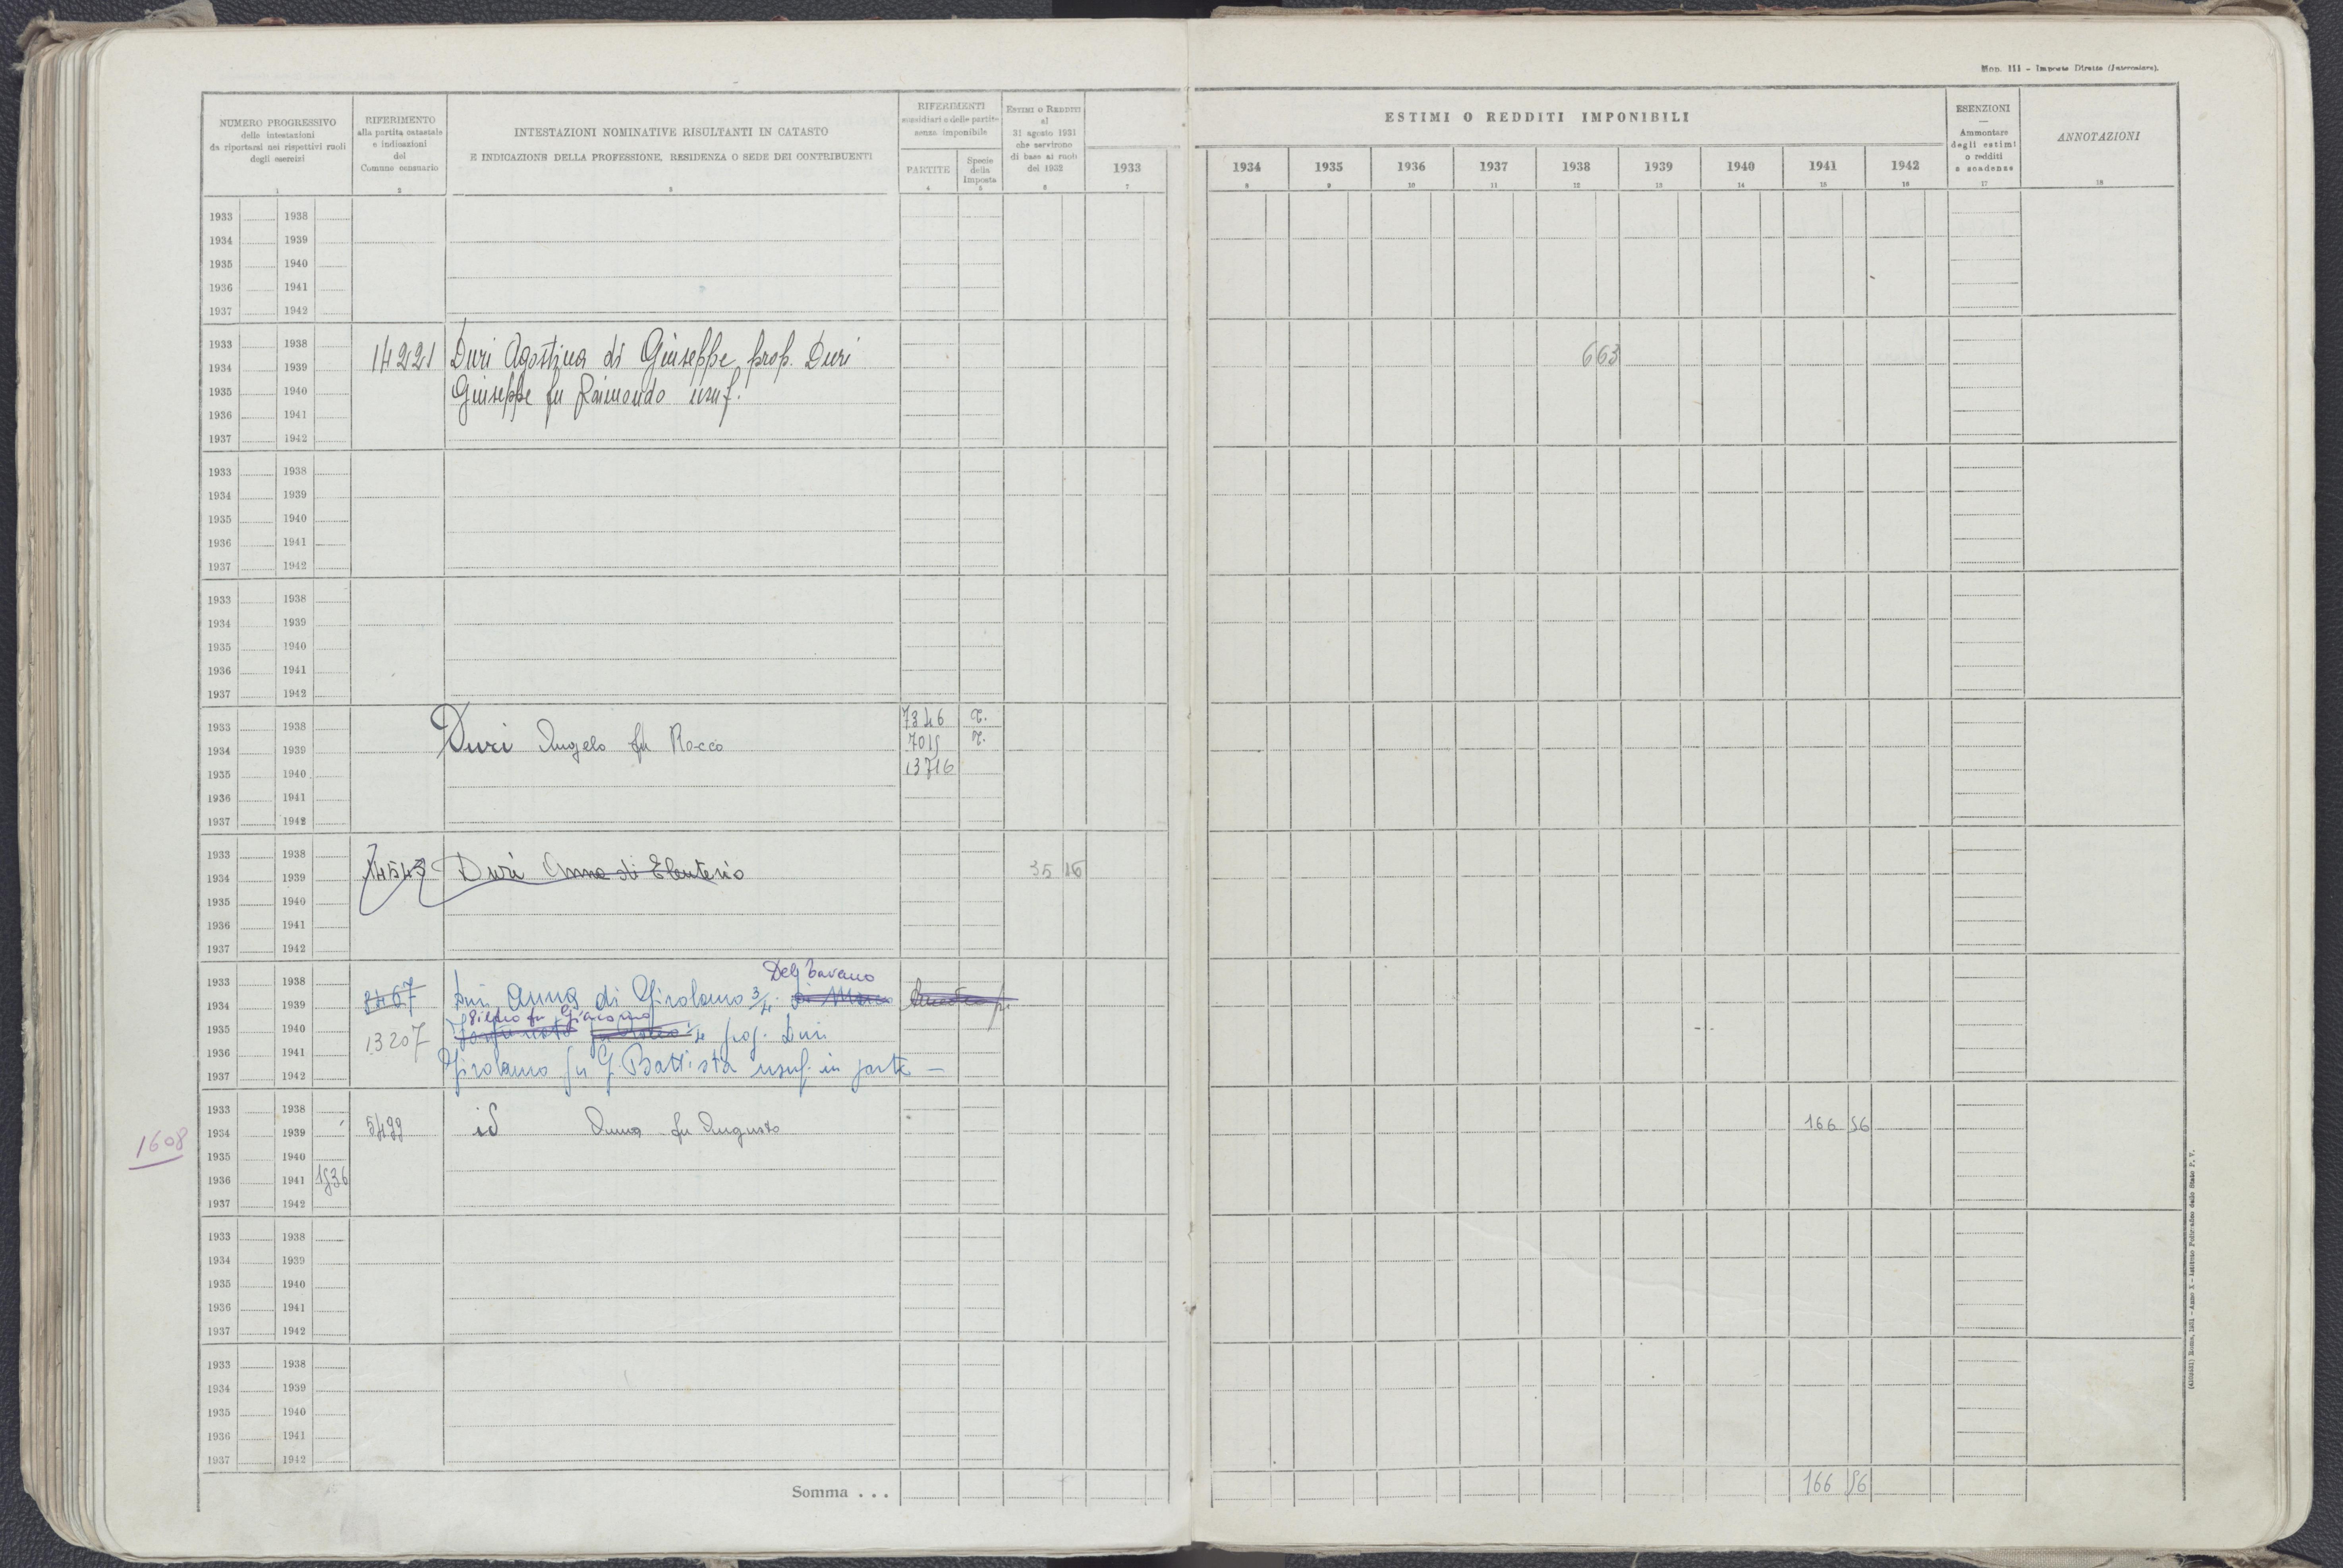 Mod. 111 - Imposte Dirette (Intercalare).
NUMERO PROGRESSIVO
delle intestazioni
da riportarsi nei rispettivi ruoli
degli esercizi
1
RIFERIMENTO
alla partita catastale
e indicazioni
del
Comune censuario
2
INTESTAZIONI NOMINATIVE RISULTANTI IN CATASTO
E INDICAZIONE DELLA PROFESSIONE, RESIDENZA O SEDE DEI CONTRIBUENTI
3
RIFERIMENTI
sussidiari e delle partite
senza imponibile
PARTITE
4
Specie
della
Imposta
5
ESTIMI O REDDITI
al
31 agosto 1931
che servirono
di base ai ruoli
del 1932
6
1933
7
ESTIMI O REDDITI IMPONIBILI
1934 1935 1936 1937 1938 1939 1940 1941 1942
8 9 10 11 12 13 14 15 16
ESENZIONI
—
Ammontare
degli estimi
o redditi
e scadenze
17
ANNOTAZIONI
18
1933 1938
1934 1939
1935 1940
1936 1941
1937 1942
1933 1938
1934 1939
1935 1940
1936 1941
1937 1942
14221 Duri Agostina di Giuseppe prop. Duri 663
Giuseppe fu Raimondo usuf.
1933 1938
1934 1939
1935 1940
1936 1941
1937 1942
1933 1938
1934 1939
1935 1940
1936 1941
1937 1942
1933 1938
1934 1939
1935 1940
1936 1941
1937 1942
Duri Angelo fu Rocco
7346 T.
7015 T.
13716
1933 1938
1934 1939
1935 1940
1936 1941
1937 1942
14543 Duri Anna di Eleuterio 35 16
1933 1938
1934 1939
1935 1940
1936 1941
1937 1942
Duri Anna di Girolamo 3/4
fu Giacomo
13207 Duri
Girolamo fu G. Battista usuf. in parte —
1933 1938
1934 1939
1935 1940
1936 1941 1536
1937 1942
1608
5499 id Anna fu Augusto 166 56
1933 1938
1934 1939
1935 1940
1936 1941
1937 1942
1933 1938
1934 1939
1935 1940
1936 1941
1937 1942
Somma . . . 166 56